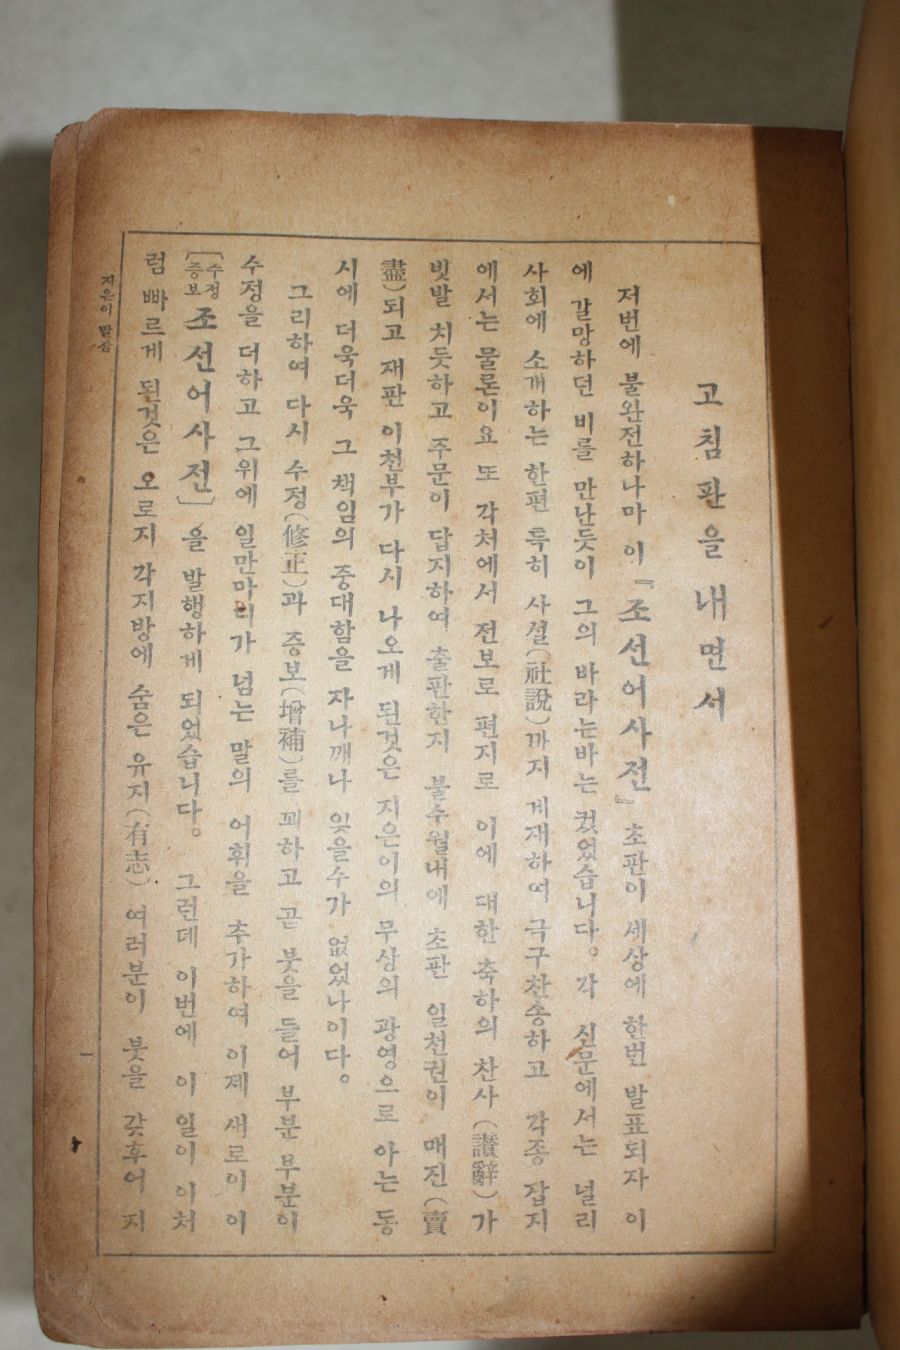 고침판을 내면서
저번에 불완전하나마 이『조선어사전』초판이 세상에 한번 발표되자 이
에 갈망하던 비를 만난듯이 그의 바라는바는 컸었습니다。각 신문에서는 널리
사회에 소개하는 한편 특히 사설(社說)까지 게재하여 극구찬송하고 각종 잡지
에서는 물론이요 또 각처에서 전보로 편지로 이에 대한 축하의 찬사(讃辭)가
빗발 치듯하고 주문이 답지하여 출판한지 불수월내에 초판 일천권이 매진(賣
盡)되고 재판 이천부가 다시 나오게 된것은 지은이의 무상의 광영으로 아는 동
시에 더욱더욱 그 책임의 중대함을 자나깨나 잊을수가 없었나이다。
그리하여 다시 수정(修正)과 증보(增補)를 꾀하고 곧 붓을 들어 부분 부분이
수정을 더하고 그위에 일만마리가 넘는 말의 어휘을 추가하여 이제 새로이 이
〔수정증보 조선어사전〕을 발행하게 되었습니다。 그런데 이번에 이 일이 이처
럼 빠르게 된것은 오로지 각지방에 숨은 유지(有志) 여러분이 붓을 갖후어 지
지은이 말씀
一